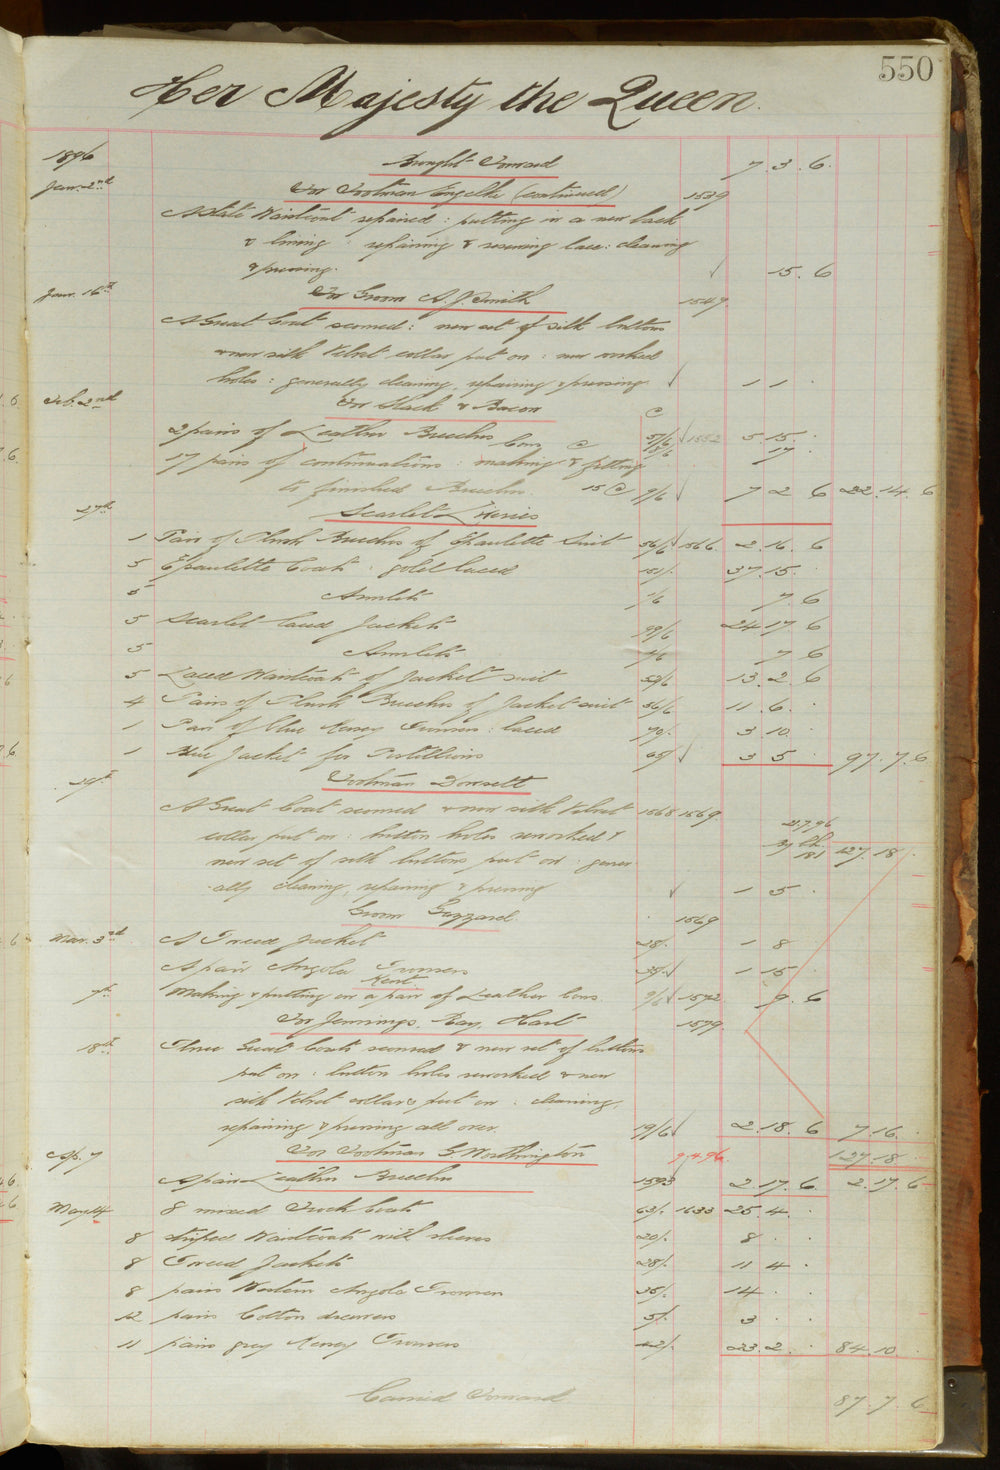 550
Her Majesty the Queen.
1896 Brought Forward 7. 3. 6.
Jany. 2nd For Footman (continued) 1539
A State Waistcoat repaired: putting in a new back
& lining: repairing & resewing lace: cleaning
& pressing. √ 15. 6
Jany. 16th For Groom A. J. Smith 1549
A Great Coat scoured: new set of silk buttons
& new silk velvet collar put on: new worked
holes: generally cleaning, repairing & pressing √ 1 1 .
Feb. 2nd For Slack & Bacon @
2 pairs of Leather Breeches 57/6 √ 1552 5. 15. .
@ 8/6 17 .
17 pairs of continuations: making & fitting
to finished Breeches. 15 @ 9/6 √ 7 2 6 22. 14. 6
27th Scarlet Liveries
1 Pair of Plush Breeches of Epaulette Suit 56/6 √ 1566 2. 16. 6
5 Epaulette Coats: gold laced 151/. 37. 15. .
5 Armlets 1/6 7. 6
5 Scarlet laced Jackets 99/6 24 17 6
5 Armlets 1/6 7 6
5 Laced Waistcoats of Jacket suit 52/6 13. 2. 6
4 Pairs of Plush Breeches of Jacket suit 56/6 11. 6. .
1 Pair of blue Kersey Trousers: laced 70/. 3 10. .
1 Blue Jacket for Postillions 65/ √ 3 5 . 97. 7. 6
29th Footman Dorsett
A Great Coat scoured & new silk velvet 1568 1569
collar put on: button holes reworked &
new set of silk buttons put on: gener
ally cleaning, repairing & pressing √ 1 5 .
181 127. 18 .
Groom Gazzard. 1569
Mar. 3rd A Tweed Jacket 28/. 1 8
A pair Angola Trousers 35/. √ 1 15 .
Kent
7th Making & putting on a pair of Leather 9/6 √ 1572 9. 6
For Jennings, Ray, Hart 1579
18th Three Great Coats scoured & new set of buttons
put on: button holes reworked & new
silk velvet collars put on: cleaning,
repairing & pressing all over. 19/6 √ 2. 18. 6 7. 16. .
Ap. 7 For Footman G. Worthington 9.4.96. 127. 18 .
A pair Leather Breeches 1593 2. 17. 6. 2. 17. 6
May 14 8 mixed Frock Coats 63/. 1633 25. 4. .
8 striped Waistcoats with sleeves 20/. 8 . .
8 Tweed Jackets 28/. 11 4 .
8 pairs Western Angola Trousers 35/. 14 . .
12 pairs Cotton drawers 5/. 3 . .
11 pairs grey Kersey Trousers 42/. 23. 2. . 84. 10. .
Carried Forward 87. 7. 6